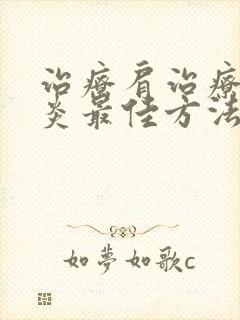 治療肩治療
炎最佳方法
如夢如歌c